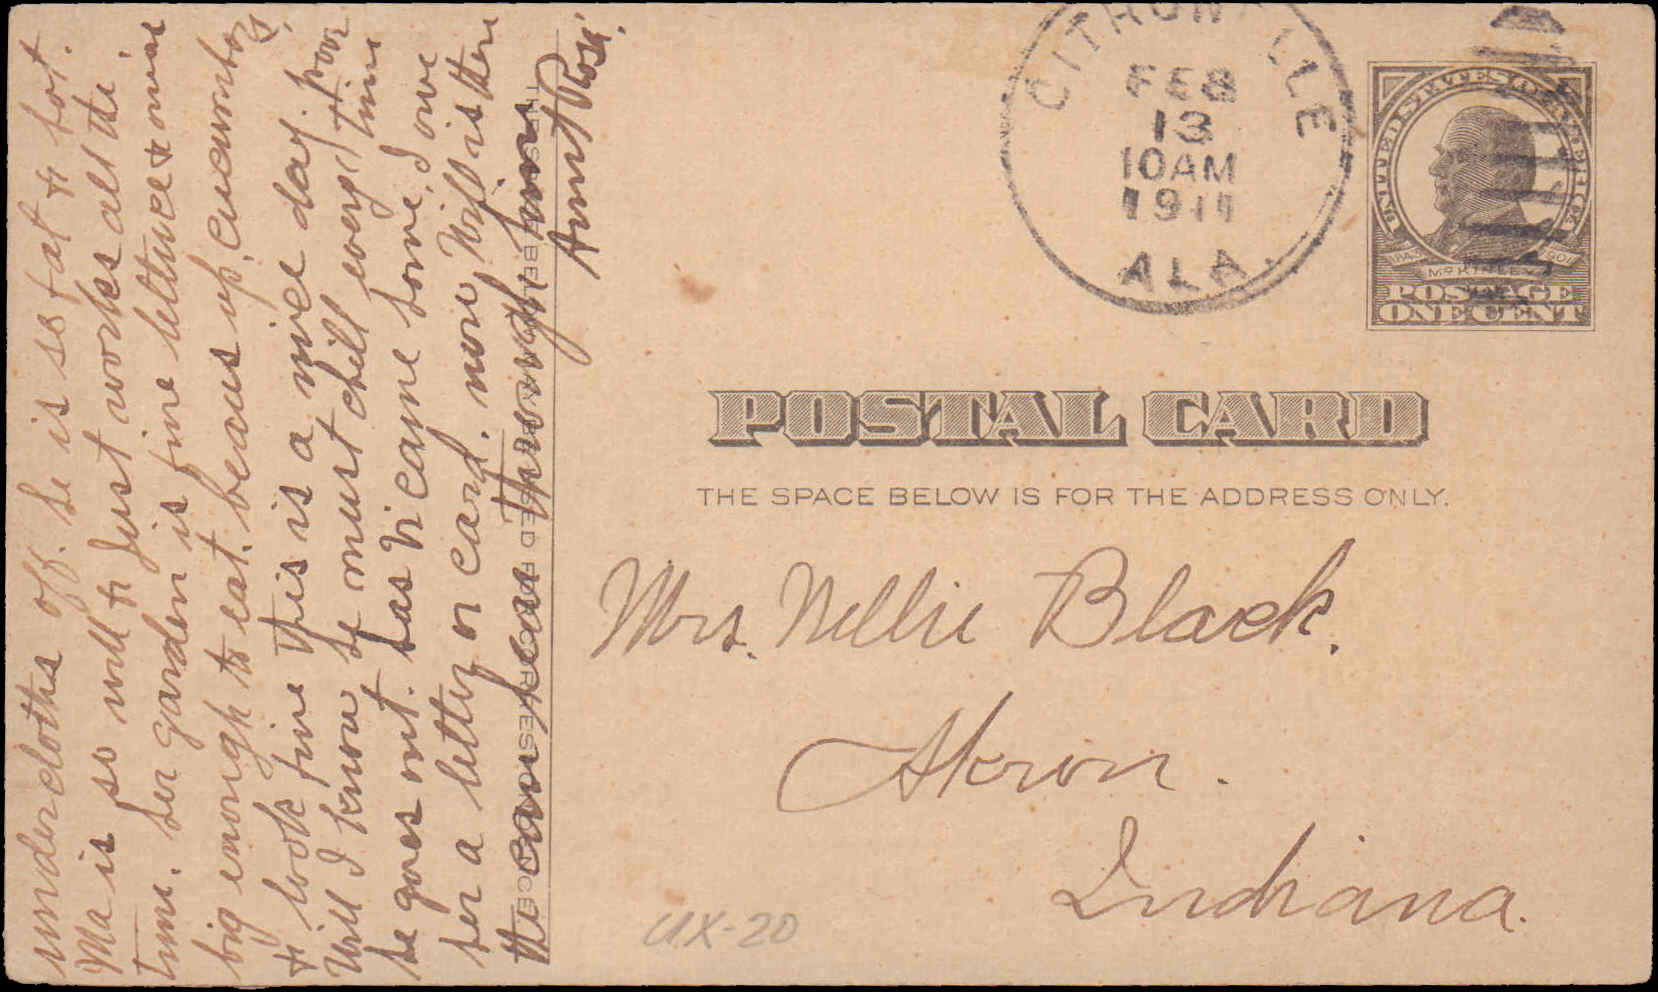 undercloths off. he is so fat & hot.
Ma is so well & Just works all the
time. her garden is fine lettuce & mine
big enough to eat. beaus up, cucumbers,
& look fine This is a nice day.
Will I know he must chill every time
he goes out. has Vi came home, I owe
her a letter or card. now Will is there
the can hear through him
Aunt Rosa.
THIS SPACE MAY BE USED FOR CORRESPONDENCE
CITRONELLE
FEB
13
10AM
1911
ALA.
UNITED STATES OF AMERICA
McKINLEY
POSTAGE
ONE CENT
POSTAL CARD
THE SPACE BELOW IS FOR THE ADDRESS ONLY.
Mrs. Nellie Black.
Akron.
Indiana.
UX-20